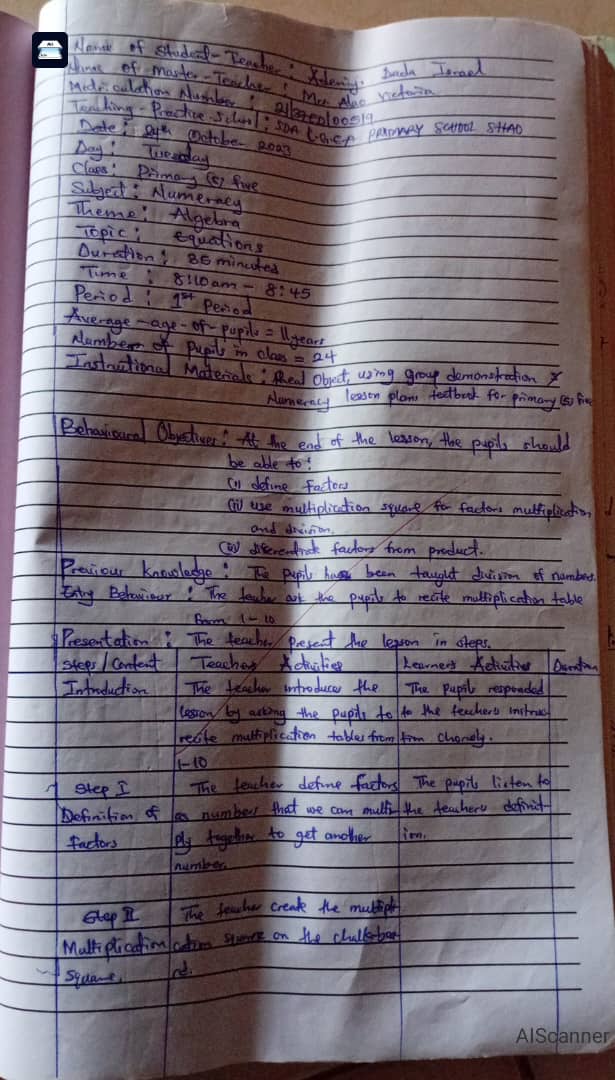 Name of Student-Teacher: Adeniyi Dada Israel
Name of Master-Teacher: Mrs Alao Victoria
Matriculation Number:
Teaching-Practice School: SDA L.G.E.A PRIMARY SCHOOL SHAO
Date: 24th October 2023
Day: Tuesday
Class: Primary (5) five
Subject: Numeracy
Theme: Algebra
Topic: Equations
Duration: 35 minutes
Time: 8:10am - 8:45
Period: 1st Period
Average-age-of-pupils = 11 years
Number of Pupils in class = 24
Instructional Materials: Real Object, using group demonstration &
Numeracy lesson plans textbook for primary (5) five
Behavioural Objectives: At the end of the lesson, the pupils should
be able to:
(i) define factors
(ii) use multiplication square for factors multiplication
and division.
(iii) differentiate factors from product.
Previous Knowledge: The pupils have been taught division of numbers.
Entry Behaviour: The teacher ask the pupils to recite multiplication table
from 1-10
Presentation: The teacher present the lesson in steps.
Steps/Content Teachers Activities Learners Activities Duration
Introduction The teacher introduces the The pupils responded
lesson by asking the pupils to to the teachers instruc
recite multiplication tables from tion chorely.
1-10
Step I The teacher define factors The pupils listen to
Definition of as numbers that we can multi the teachers definit
factors ply together to get another ion.
number.
Step II The teacher create the multipli
Multiplication cation square on the chalkboa
Square. rd.
AIScanner